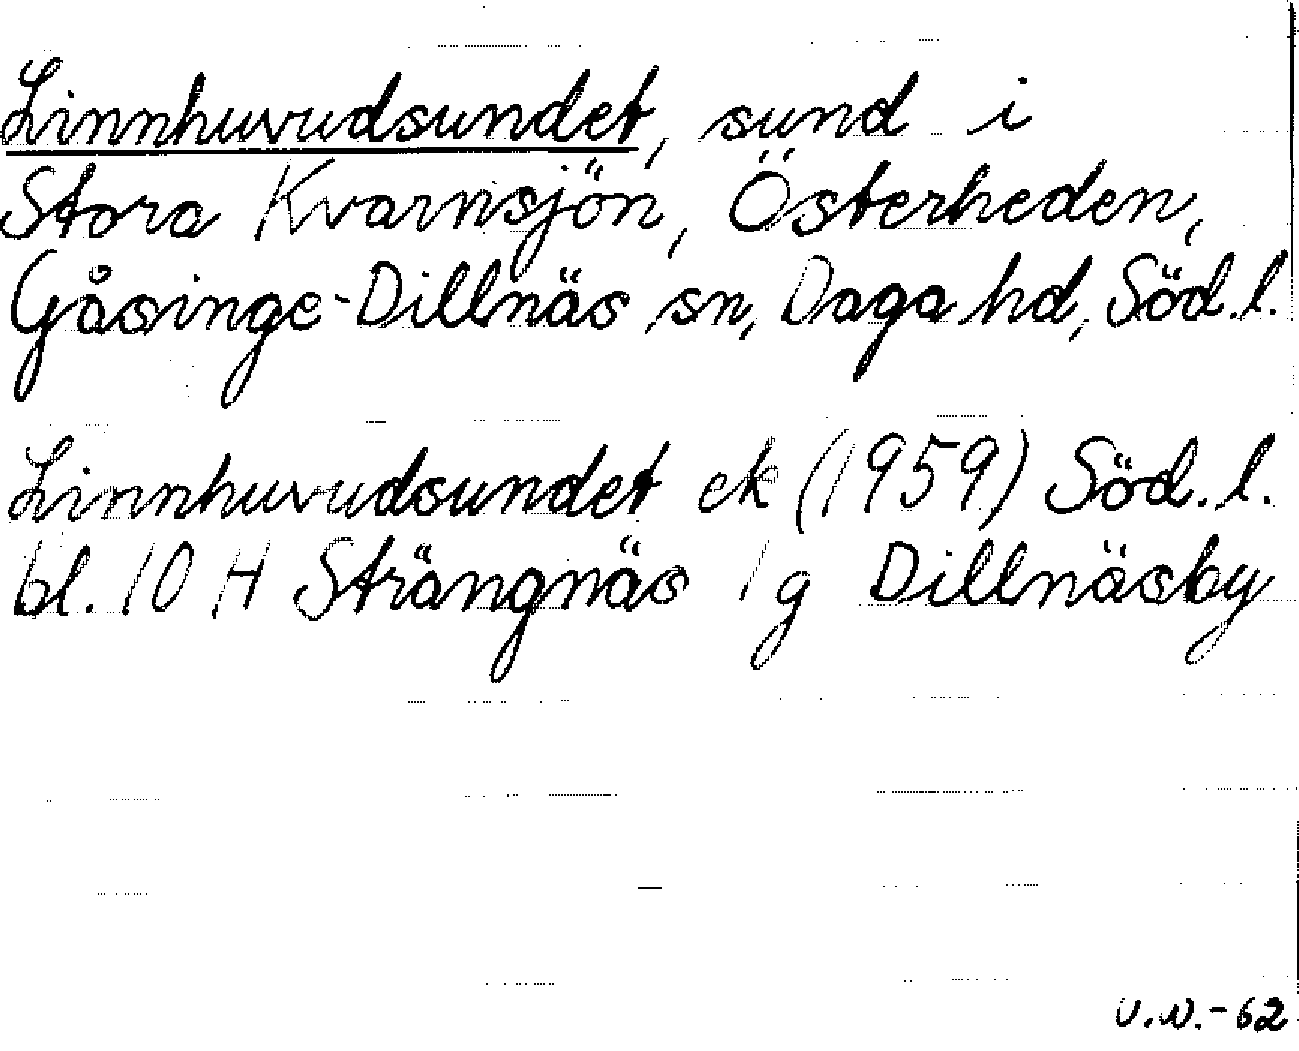 Linnhuvudsundet, sund i
Stora Kvarnsjön, Österheden,
Gåsinge-Dillnäs sn, Daga hd, Söd.l.
Linnhuvudsundet ek (1959) Söd.l.
bl. 10 H Strängnäs 1 g Dillnäsby
U.N.-62